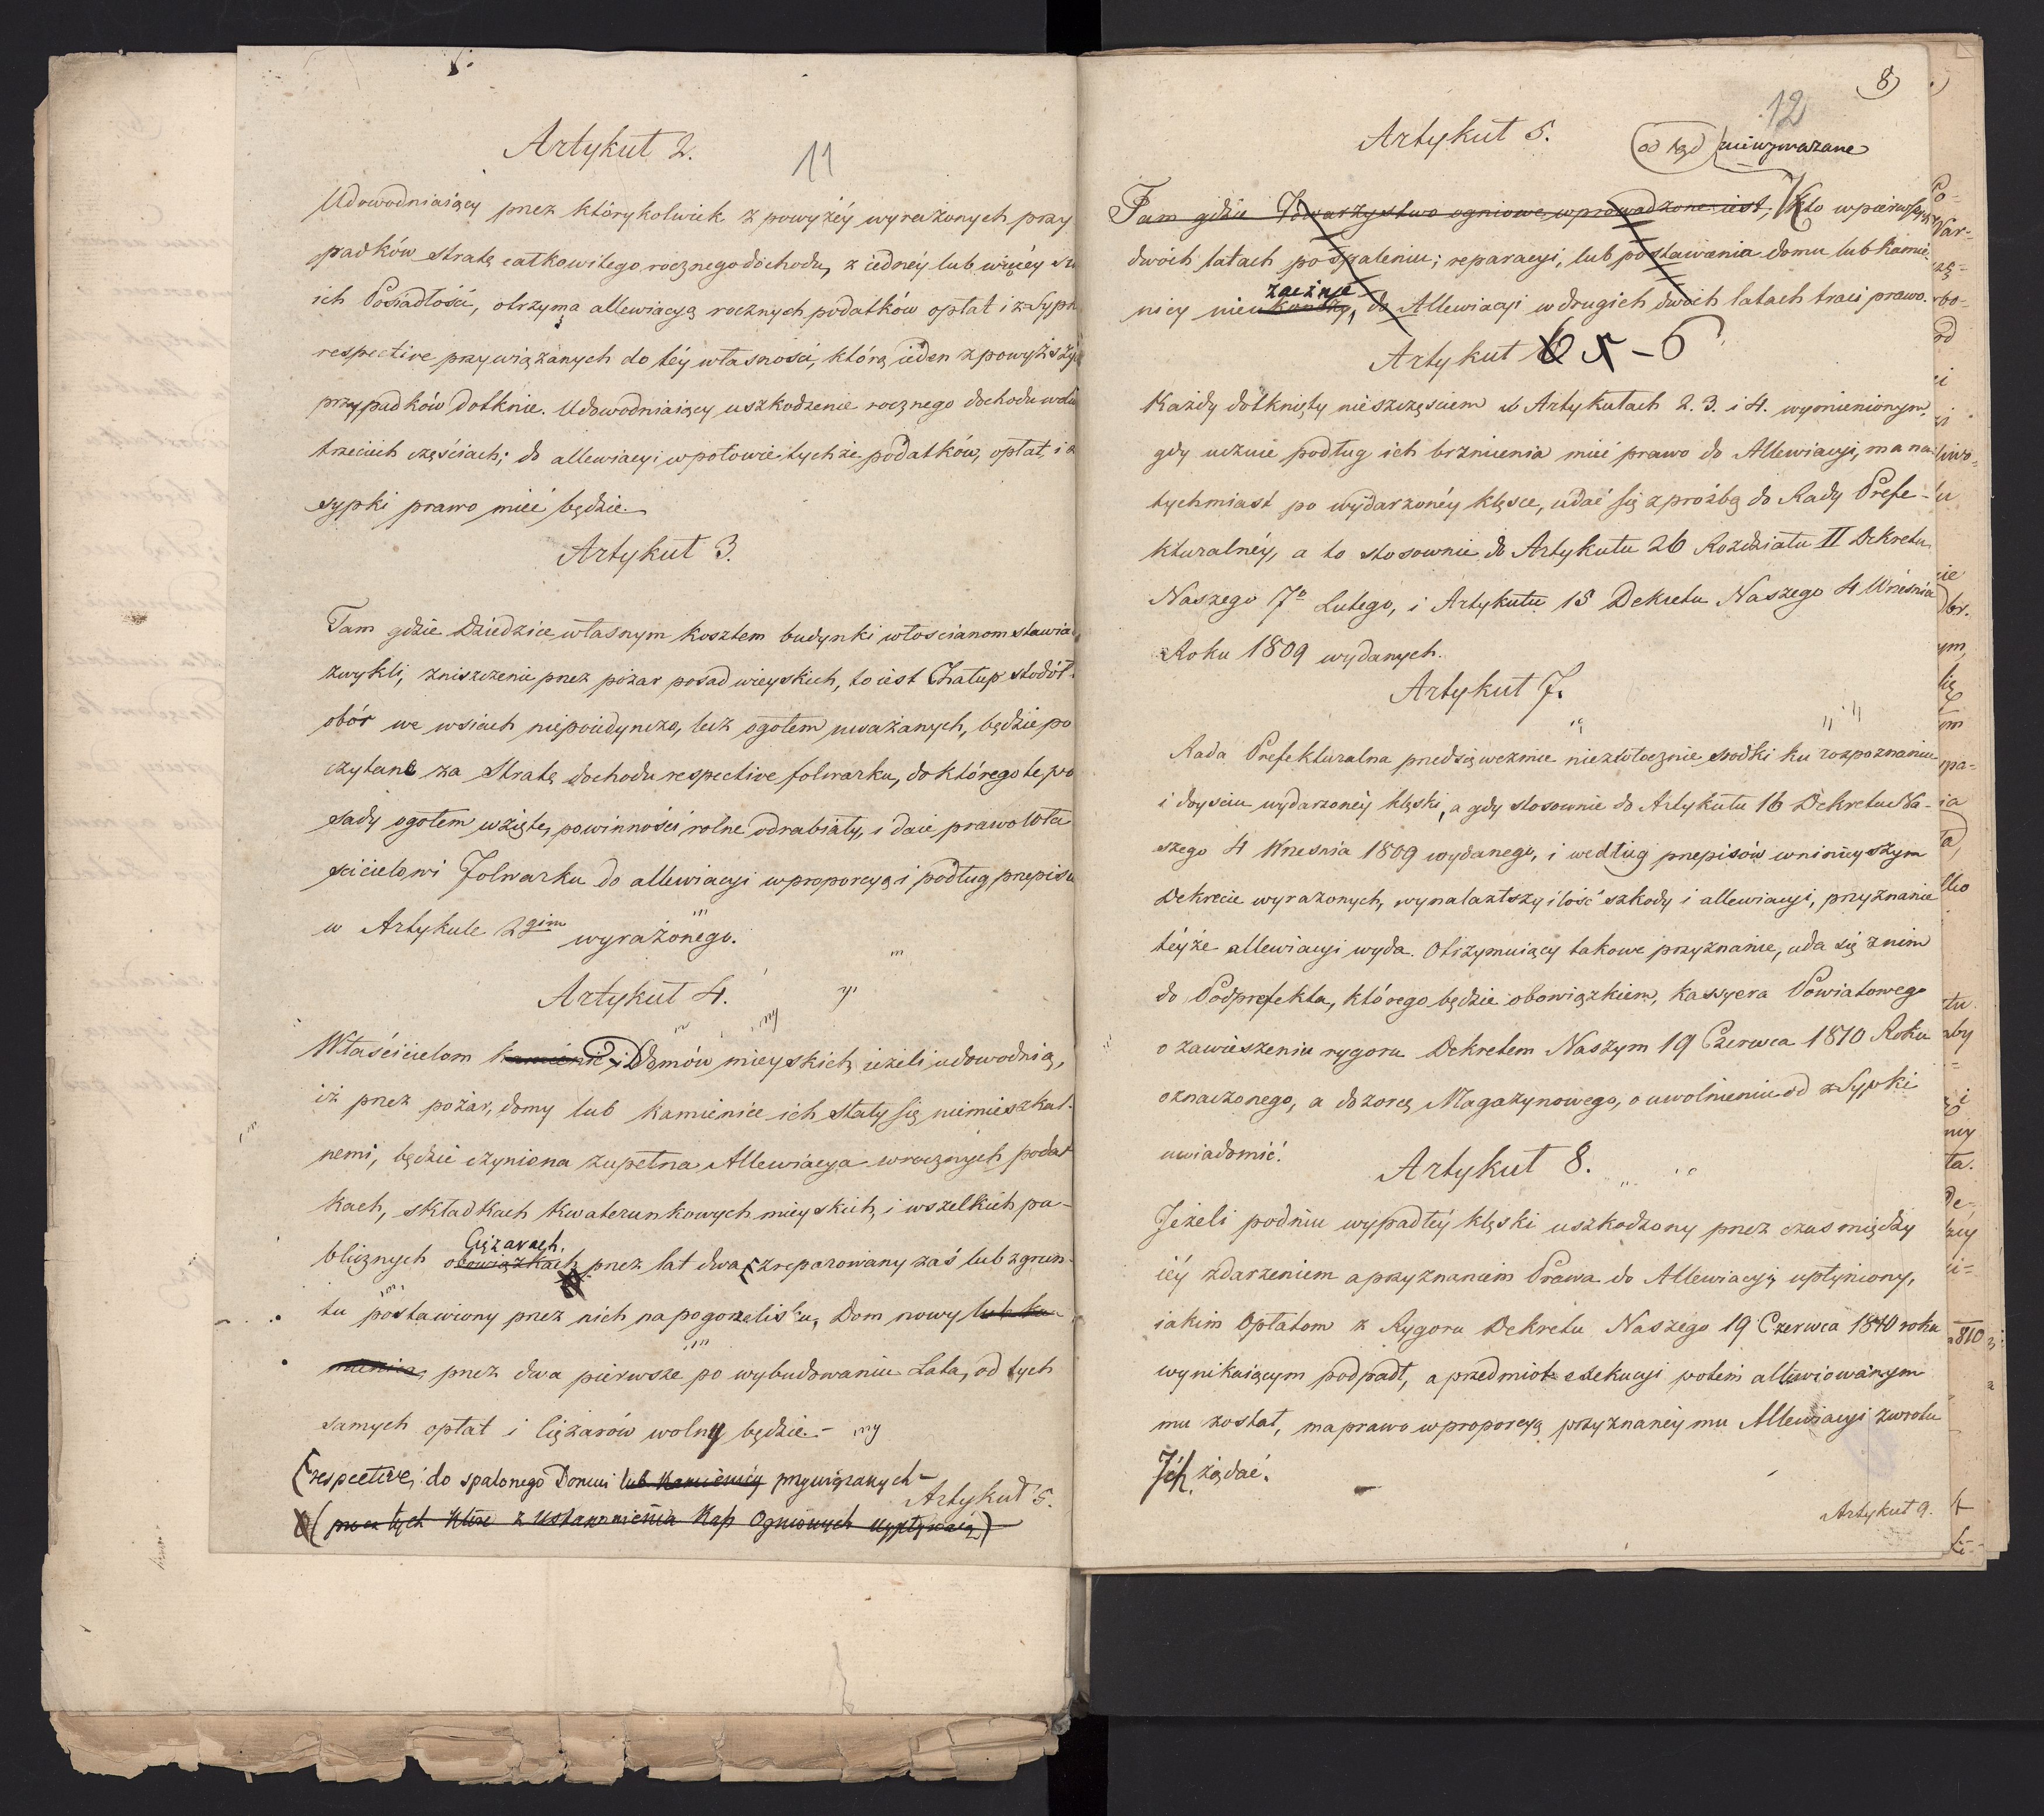 Artykuł 2.
11
Udowodniaiący przez którykolwiek z powyżéy wyrażonych przy
padków stratę całkowitego rocznego dochodu, z iednéy lub więcéy
ich Posiadłości, otrzyma allewiacyą rocznych podatków opłat i zsypu
respective przywiązanych do téy własności, którą ieden z powyższy
przypadków dotknie. Udowodniaiący uszkodzenie rocznego dochodu
trzecich częściach; do allewiacyi w połowie tychże podatków, opłat i
sypki prawo mieć będzie.
Artykuł 3.
Tam gdzie Dziedzice własnym kosztem budynki włoscianom stawiać
zwykli, zniszczenie przez pożar posad wieyskich, to iest Chałup stodół
obór we wsiach niepoiedynczo, lecz ogołem uważanych, będzie po
czytane za Stratę dochodu respective folwarku, do którego te po
sady ogołem wzięte, powinności rolne odrabiały, i daie prawo Wła
scicielowi Folwarku do allewiacyi w proporcyą i podług przepisu
w Artykule 2gim wyrażonego.
Artykuł 4.
Właścicielom kamienic i Domów mieyskich, ieżeli udowodnią,
iż przez pożar, domy lub kamienice ich stały się niemieszkal-
nemi, będzie czyniona zupełna Allewiacya w rocznych podat
kach, składkach kwaterunkowych mieyskich, i wszelkich pu-
Ciężarach.
blicznych obowiązkach przez lat dwa, zreparowany zaś lub z grun-
tu postawiony przez nich na pogorzelisku, Dom nowy lub ka-
mienica, przez dwa pierwsze po wybudowaniu Lata, od tych
samych opłat i Ciężarów wolny będzie. -
(respective, do spalonego Domu lub Kamienicy przywiązanych -
Artykuł 5.
(procz tych które z ustanowienia Kass Ogniowych wypływaią)
8)
12
Artykuł 5.
od tąd niewyrazane
Tam gdzie Towarzystwo ogniowe wprowadzone iest, Kto w pierwszych
dwóch latach po spaleniu; reparacyi, lub postawienia domu lub Kamie-
zacznie
nicy nieukończy, do Allewiacyi w drugich dwóch latach traci prawo.
Artykuł 6 5 - 6
Każdy dotknięty nieszczęsciem w Artykułach 2. 3. i 4. wymienionym,
gdy uczuie podług ich brzmienia mieć prawo do Allewiacyi, ma na-
tychmiast po wydarzonéy klęsce, udać się z proźbą do Rady Prefe-
kturalnéy, a to stosownie do Artykułu 26 Rozdziału II Dekretu
Naszego 7o Lutego, i Artykułu 15 Dekretu Naszego 4 Wrzesnia
Roku 1809 wydanych.
Artykuł 7.
Rada Prefekturalna przedsięwezmie niezwłocznie srodki ku rozpoznaniu
i doysciu wydarzonéy klęski, a gdy stosownie do Artykułu 16 Dekretu Na-
szego 4 Wrzesnia 1809 wydanego, i według przepisów w ninieyszym
Dekrecie wyrażonych, wynalazłszy ilość szkody i allewiacyi, przyznanie
téyże allewiacyi wyda. Otrzymuiący takowe przyznanie, uda się z nim
do Podprefekta, którego będzie obowiązkiem, kassyera Powiatowego
o zawieszeniu rygoru Dekretem Naszym 19 Czerwca 1810 Roku
oznaczonego, a dozorcę Magazynowego, o uwolnieniu od zSypki
uwiadomić.
Artykuł 8.
Jeżeli podniu wypadłéy klęski uszkodzony przez czas między
iéy zdarzeniem a przyznaniem Prawa do Allewiacyi upłyniony,
iakim Opłatom z Rygoru Dekretu Naszego 19 Czerwca 1810 roku
wynikaiącym podpadł, a przedmiot exekucyi potem allewiowanym
mu został, ma prawo w proporcyą przyznanéy mu Allewiacyi zwrotu
Jch żądać.
Artykuł 9.